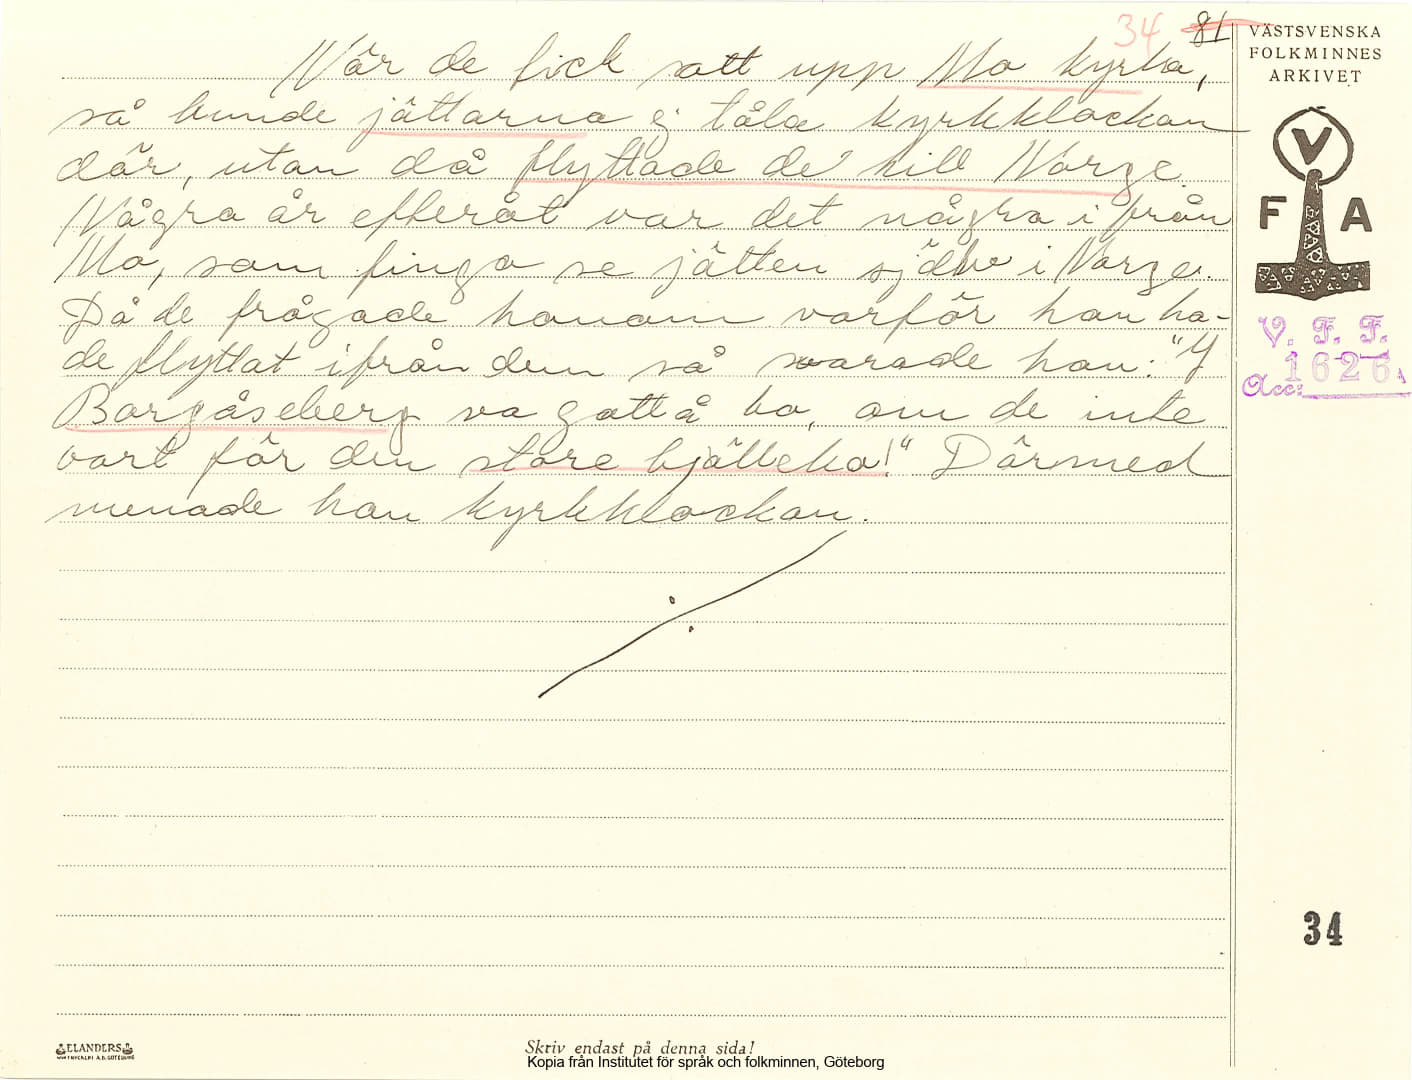 34 81
VÄSTSVENSKA
FOLKMINNES
ARKIVET
När de fick satt upp Mo kyrka,
så kunde jättarna ej tåla kyrkklockan
där, utan då flyttade de till Norge.
Några år efteråt var det några ifrån
Mo, som fingo se jätten själv i Norge.
Då de frågade honom varför han ha-
de flyttat ifrån dem så svarade han: "I
Borgåseberg va gott å bo, om de inte
vart för den store bjälleko!" Därmed
menade han kyrkklockan.
V
F A
V. F. F.
Acc: 1626
34
ELANDERS
Skriv endast på denna sida!
Kopia från Institutet för språk och folkminnen, Göteborg